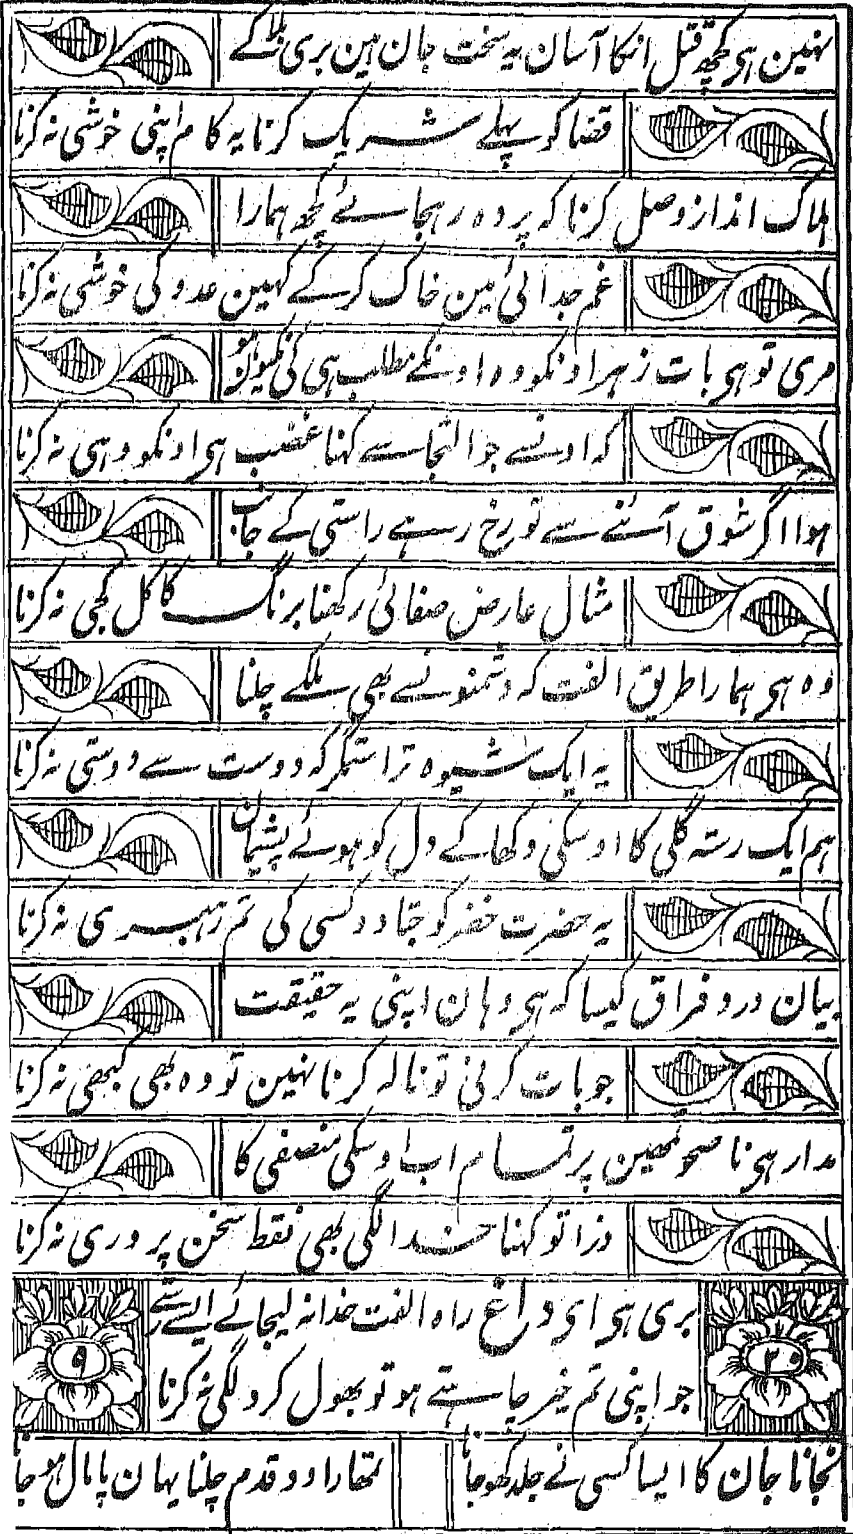 نہین ہی کچھ قتل انکا آسان یہ سخت جان ہین بری بلا کے
قضا کو پہلے شریک کرنا یہ کام اپنی خوشی نہ کرنا
ہلاک انداز وصل کرنا کہ پردہ رہجائے کچھ ہمارا
غم جدائی مین خاک کر کے کہین عدو کی خوشی نہ کرنا
مری تو ہی بات زہر اونکو وہ اونکے مطلب ہی کی کیون ہو
کہ اونسے جو التجا سے کہنا غضب ہی اونکو وہی نہ کرنا
ہوا اگر شوق آئنے سے تو رخ رہے راستی کے جانب
مثال عارض صفائی رکھنا برنگ کاکل کجی نہ کرنا
وہ ہی ہمارا طریق الفت کہ دشمنونسے بھی ملکے چلنا
یہ ایک شیوہ ترا ستمگر کہ دوست سے دوستی نہ کرنا
ہم ایک رستہ گلی کا اوسکی دکھا کے دل کو ہوئے پشیمان
یہ حضرت خضر کو جتا دو کسی کی تم رہبری نہ کرنا
بیان درد فراق کیسا کہ ہی وہان اپنی یہ حقیقت
جو بات کرنی تو نالہ کرنا نہین تو وہ بھی کبھی نہ کرنا
مدار ہی ناصحو تمھین پر تمام اب اوسکی منصفی کا
ذرا تو کہنا خدا لگی بھی فقط سخن پروری نہ کرنا
بری ہی ای داغ راہ الفت خدا نہ لیجائے ایسے رستے
۲۰ ۹
جو اپنی تم خیر چاہتے ہو تو بھول کر دلگی نہ کرنا
نجانا جان کا ایسا کسی نے جلد کھو جانا تمھارا دو قدم چلنا یہان پامال ہو جانا